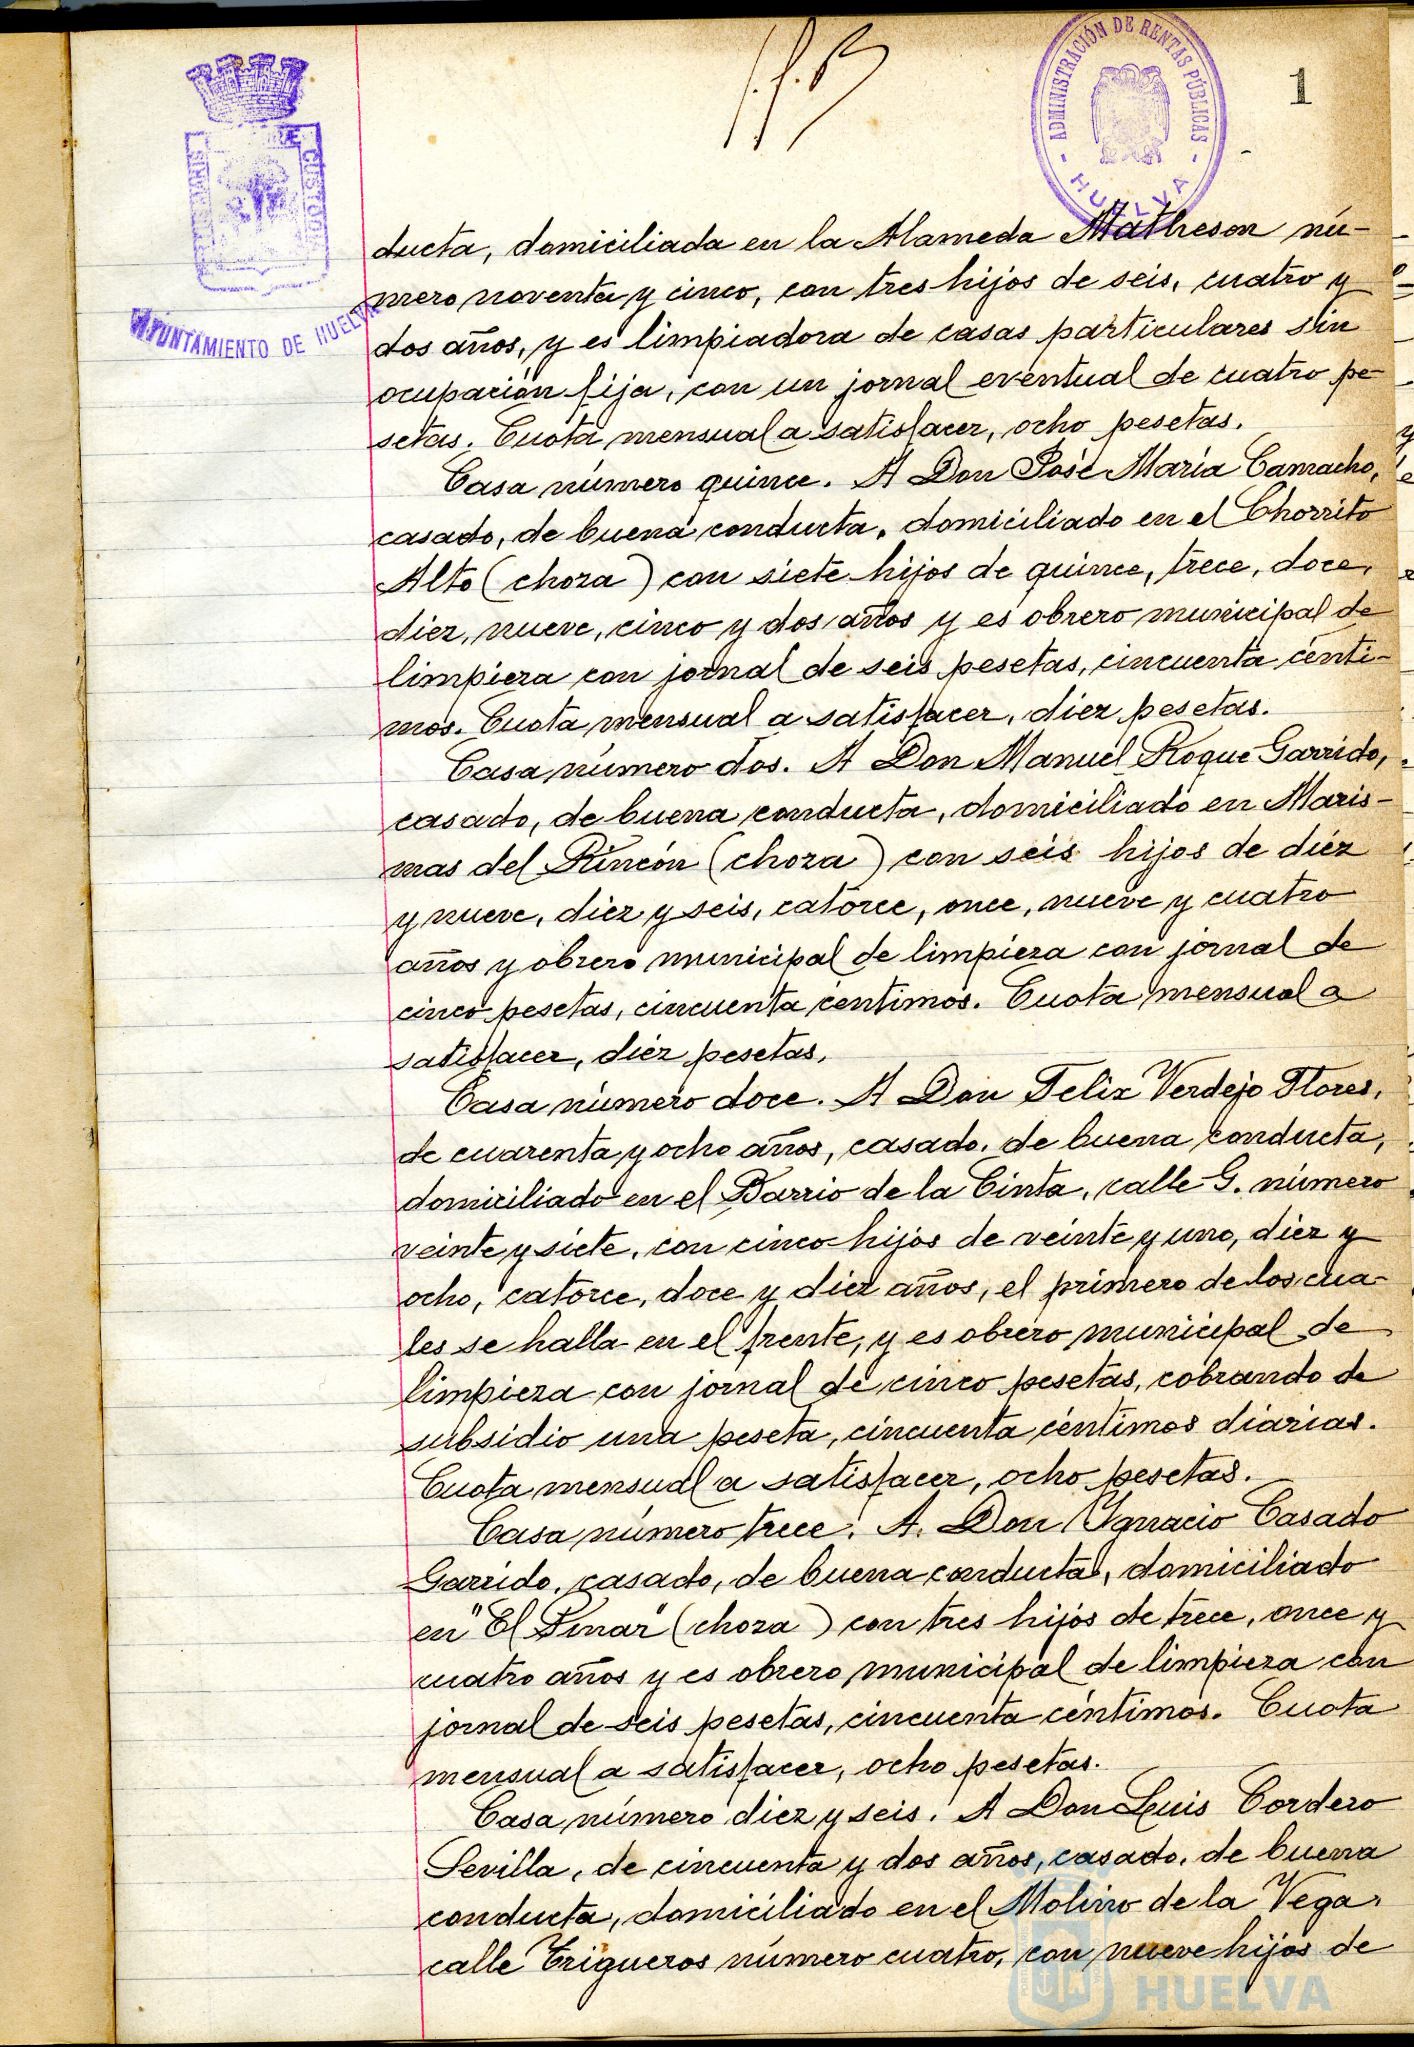 ADMINISTRACIÓN DE RENTAS PÚBLICAS
- HUELVA -
1
CUSTODIA
AYUNTAMIENTO DE HUELVA
ducta, domiciliada en la Alameda Matheson nú-
mero noventa y cinco, con tres hijos de seis, cuatro y
dos años, y es limpiadora de casas particulares sin
ocupación fija, con un jornal eventual de cuatro pe-
setas. Cuota mensual a satisfacer, ocho pesetas.
Casa número quince. A Don José María Camacho,
casado, de buena conducta, domiciliado en el Chorrito
Alto (choza) con siete hijos de quince, trece, doce,
diez, nueve, cinco y dos años y es obrero municipal de
limpieza con jornal de seis pesetas, cincuenta cénti-
mos. Cuota mensual a satisfacer, diez pesetas.
Casa número dos. A Don Manuel Roque Garrido,
casado, de buena conducta, domiciliado en Maris-
mas del Rincón (choza) con seis hijos de diéz
y nueve, diez y seis, catorce, once, nueve y cuatro
años y obrero municipal de limpieza con jornal de
cinco pesetas, cincuenta céntimos. Cuota mensual a
satisfacer, diéz pesetas.
Casa número doce. A Don Felix Verdejo Flores,
de cuarenta y ocho años, casado, de buena conducta,
domiciliado en el Barrio de la Cinta, calle G. número
veinte y siete, con cinco hijos de veinte y uno, diez y
ocho, catorce, doce y diez años, el primero de los cua-
les se halla en el frente, y es obrero municipal de
limpieza con jornal de cinco pesetas, cobrando de
subsidio una peseta, cincuenta céntimos diarias.
Cuota mensual a satisfacer, ocho pesetas.
Casa número trece. A. Don Ygnacio Casado
Garrido, casado, de buena conducta, domiciliado
en "El Pinar" (choza) con tres hijos de trece, once y
cuatro años y es obrero municipal de limpieza con
jornal de seis pesetas, cincuenta céntimos. Cuota
mensual a satisfacer, ocho pesetas.
Casa número diez y seis. A Don Luis Cordero
Sevilla, de cincuenta y dos años, casado, de buena
conducta, domiciliado en el Molino de la Vega,
calle Trigueros número cuatro, con nueve hijos de
HUELVA